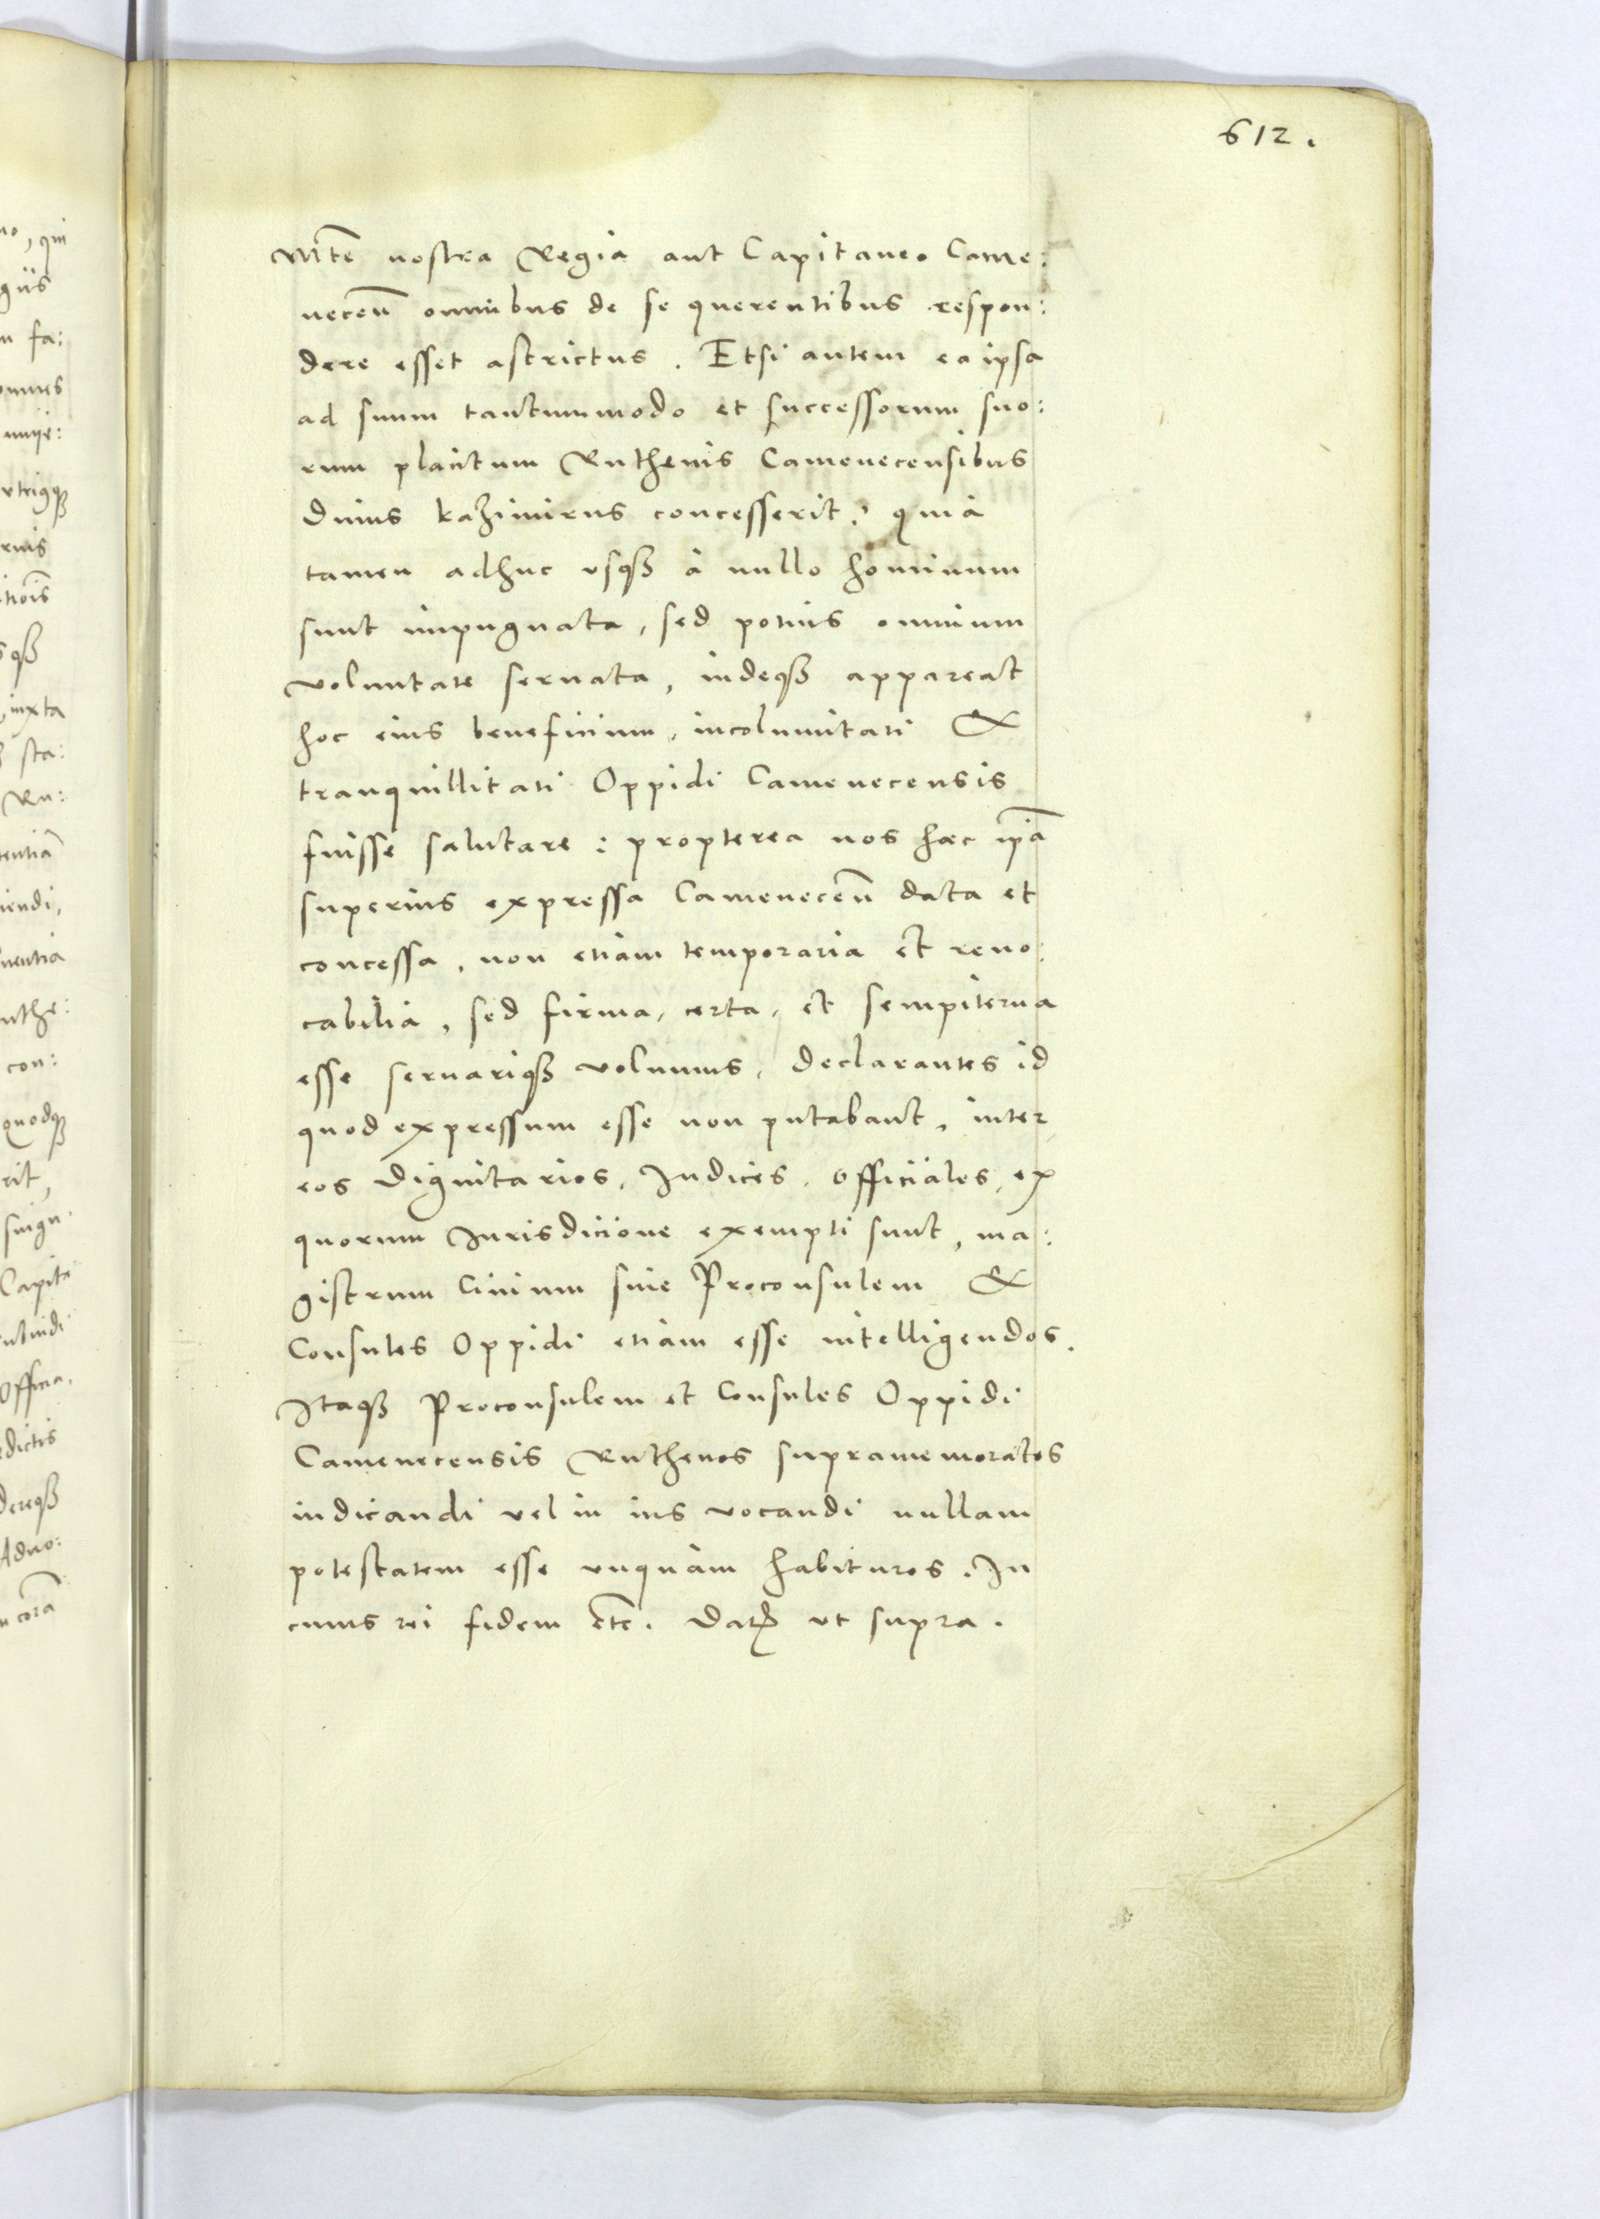 612.
Mte nostra Regia aut Capitaneo Came:
necen̄ omnibus de se querentibus respon:
dere esset astrictus. Etsi autem ea ipsa
ad suum tantummodo et successorum suo:
rum placitum Ruthenis Camenecensibus
Divus Kazimirus concesserit: quia
tamen adhuc usqȝ à nullo hominum
sunt impugnata, sed potius omnium
voluntate servata, indeqȝ appareat
hoc eius beneficium, incolumitati &
tranquillitati Oppidi Camenecensis
fuisse salutare: propterea nos hæc ip̄a
superius expressa Camenecen̄ data et
concessa, non etiam temporaria et revo:
cabilia, sed firma, certa, et sempiterna
esse servariqȝ volumus, declarantes id
quod expressum esse non putabant, inter
eos Dignitarios, Iudices, Officiales, ex
quorum Iurisdicione exempti sunt, ma:
gistrum Civium sive Proconsulem &
Consules Oppidi etiam esse intelligendos.
Itaqȝ Proconsulem et Consules Oppidi
Camenecensis Ruthenos supramemoratos
iudicandi vel in ius vocandi nullam
potestatem esse unquam habituros. In
cuius rei fidem etc. Datȝ ut supra.